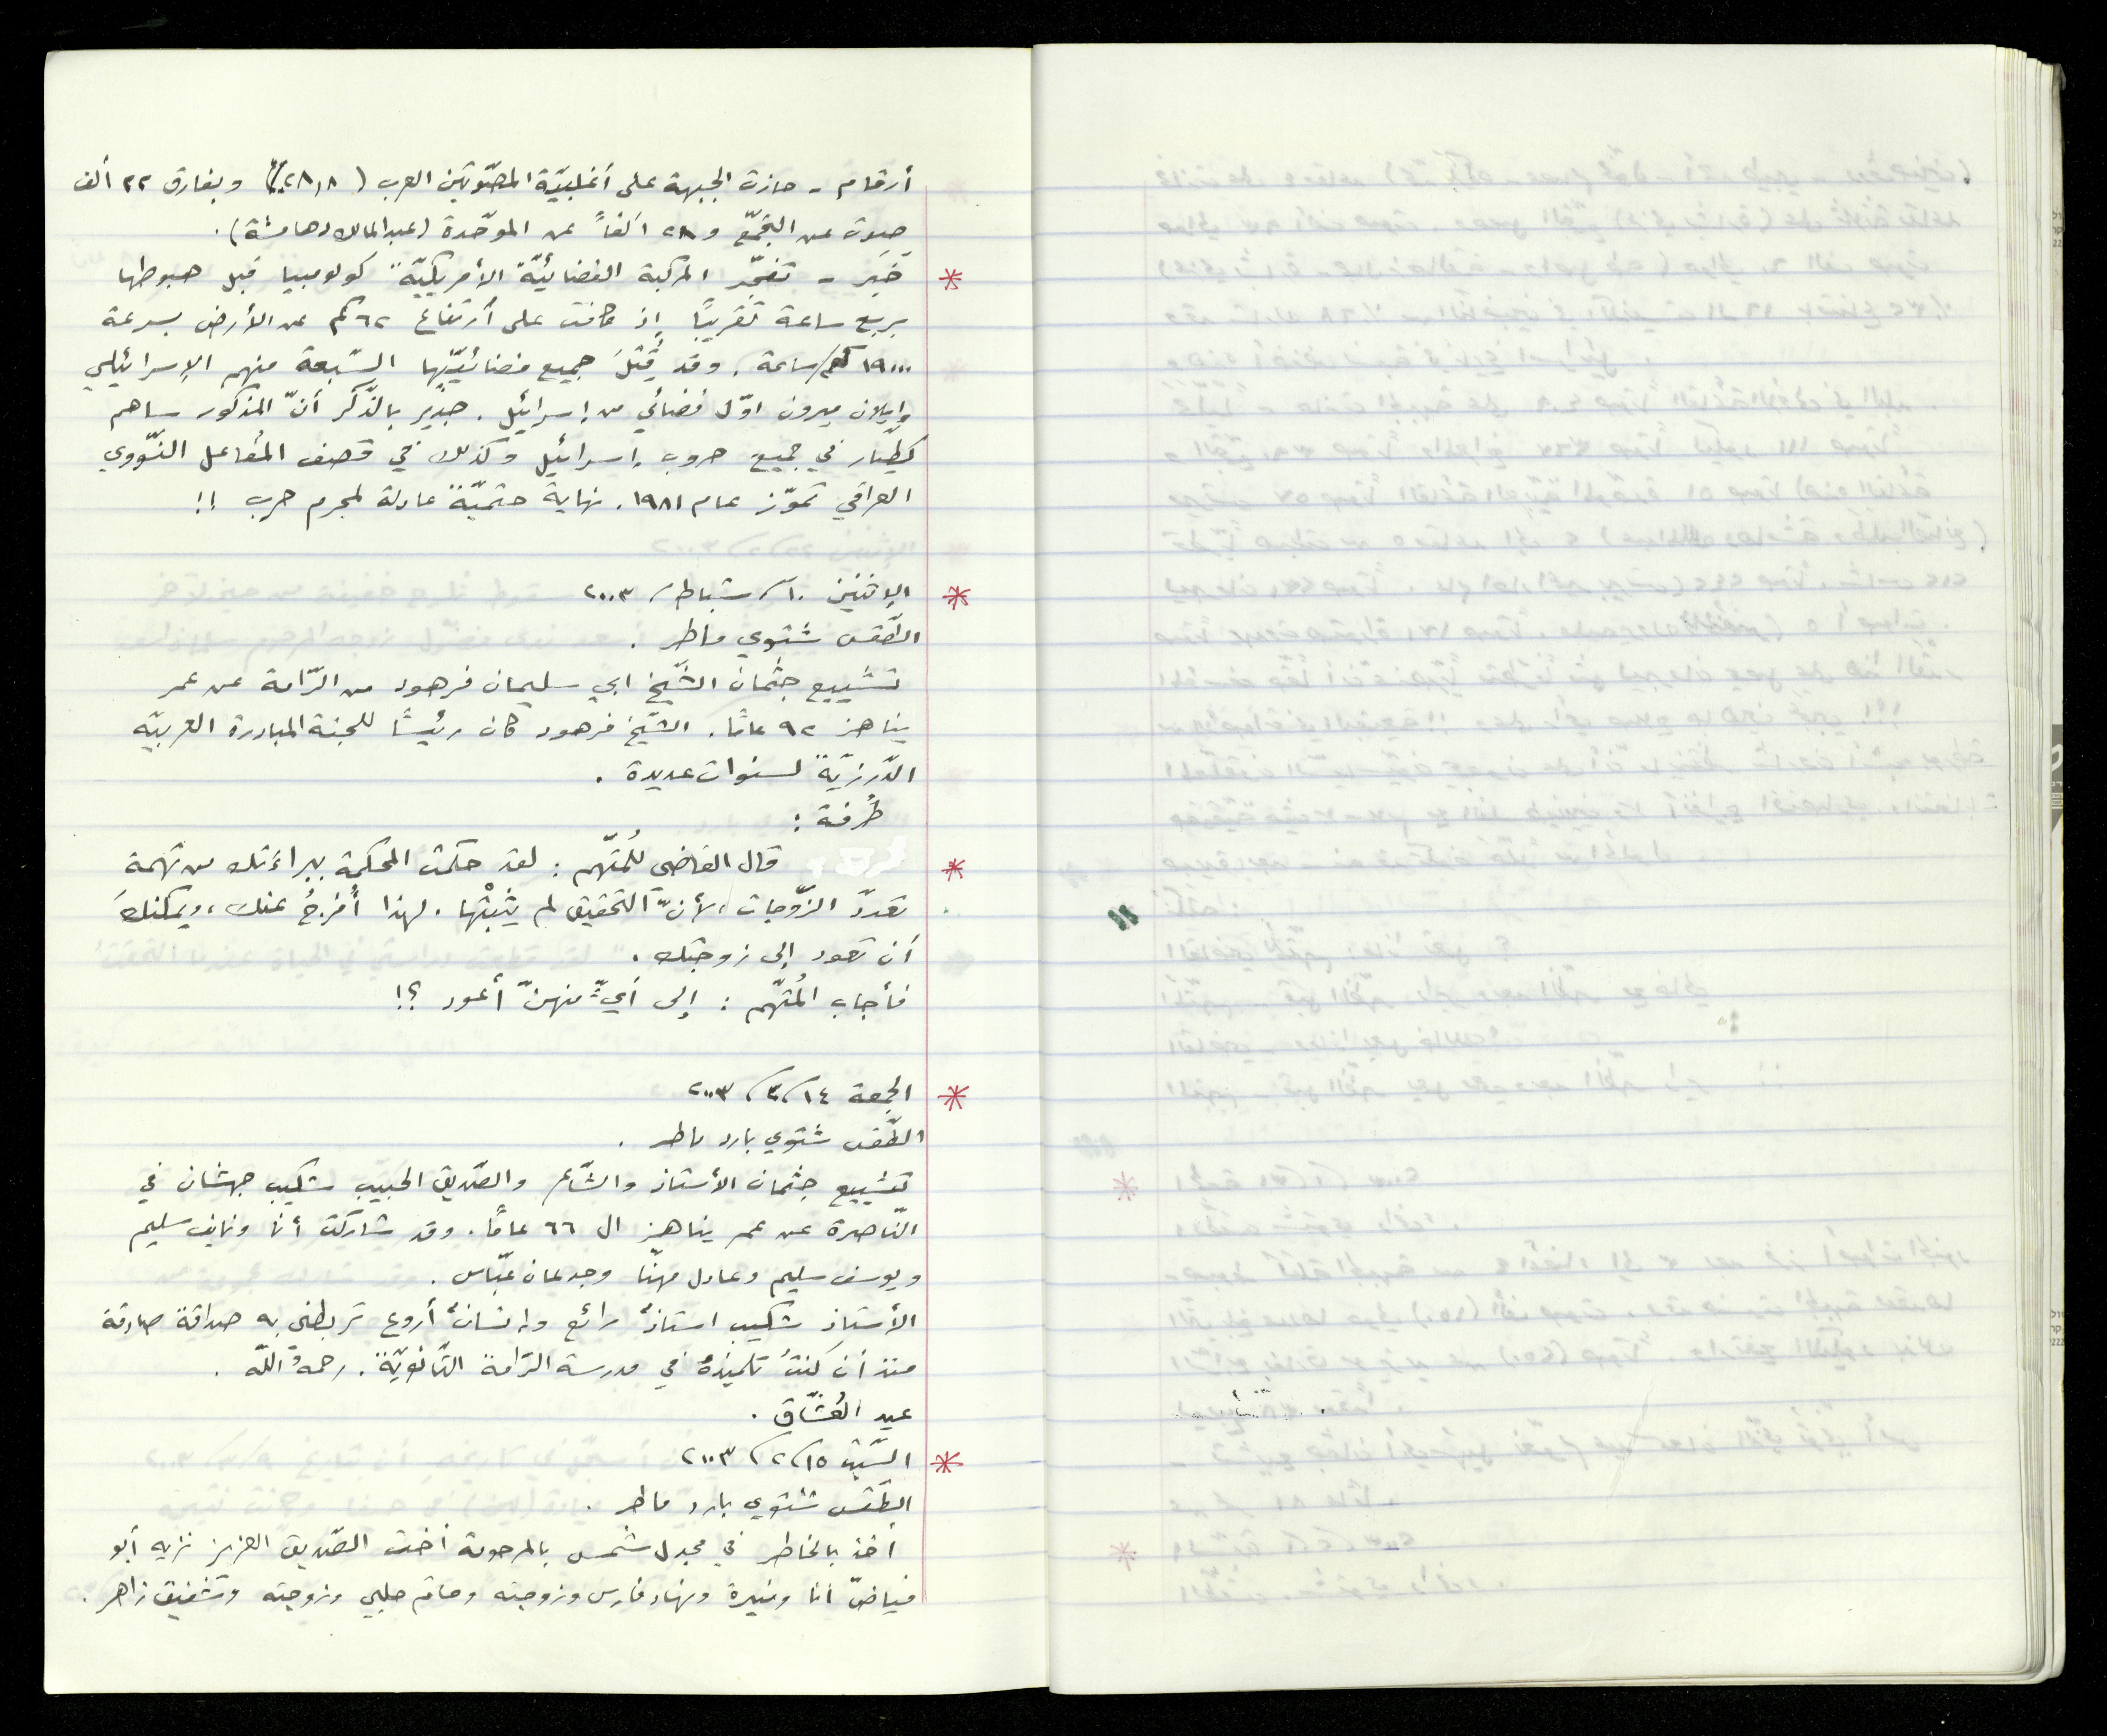 أرقام - حازت الجبهة على أغلبيّة المصّوتين العرب (٢٨,٨٪) وبفارق ٢٢ ألف
صوت عن التجمّع و ٢٨ ألفاً عن الموحّدة (عبد المالك دهامشة).
* خبر - تفجّر المركبة الفضائيّة الأمريكيّة كولومبيا قبل هبوطها
بربع ساعة تقريبًا إذ كانت على أرتفاع ٦٢ كم عن الأرض بسرعة
١٩٠٠٠ كم/ساعة. وقد قُتلَ جميع فضائيّيها السّبعة منهم الإسرائيلي
إيلان ميرون اوّل فضائي من إسرائيل. جدير بالذّكر أنّ المذكور ساهم
كطيّار في جميع حروب إسرائيل وكذلك في قصف المُفاعل النّووي
العراقي تموّز عام ١٩٨١. نهاية حتميّة عادلة لمجرم حرب !!
* الإثنين ١٠/ شباط/ ٢٠٠٣
الطّقس شتوي ماطر.
تشييع جثمان الشّيخ ابي سليمان فرهود من الرّامة عن عمر
يناهز ٩٢ عامًا. الشّيخ فرهود كان رئيسًا للجنة المبادرة العربيّه
الدّرزيّة لسنوات عديدة.
طُرفة :
* قال القاضي للمُتّهم : لقد حكمت المحكمة ببراءَتك من تهمة
تعدّد الزّوجات، لأنّ التحقيق لم يثبتْها. لهذا أُفرجُ عنك، ويمكنكَ
أن تعود إلى زوجتك.
فأجاب المُتّهم : إلى أيٍّ منهنّ أعود ؟!
* الجمعة ١٤/٢/٢٠٠٣
الطّقس شتوي بارد ماطر.
تشييع جثمان الأستاذ والشّاعر والصّديق الحبيب شكيب جهشان في
النّاصرة عن عمر يناهز ال ٦٦ عامًا. وقد شاركت أنا ونايف سليم
ويوسف سليم وعادل مهنّا وجدعان عبّاس.
الأستاذ شكيب استاذٌ رائع وإنسانٌ أروع تربطني به صداقة صادقة
منذ أن كنتُ تلميذهُ في مدرسة الرّامة الثّانويّة. رحمهُ اللّه.
عيد العُشّاق.
* السّبت ١٥/٢/٢٠٠٣
الطّقس شتوي بارد ماطر.
أخذ بالخاطر في مجدل شمس بالمرحومة أخت الصّديق العزيز نزيه أبو
فياضّ أنا ومنيرة ونهاد فارس وزوجته وحاتم حلبي وزوجته وشفيق زاهر.